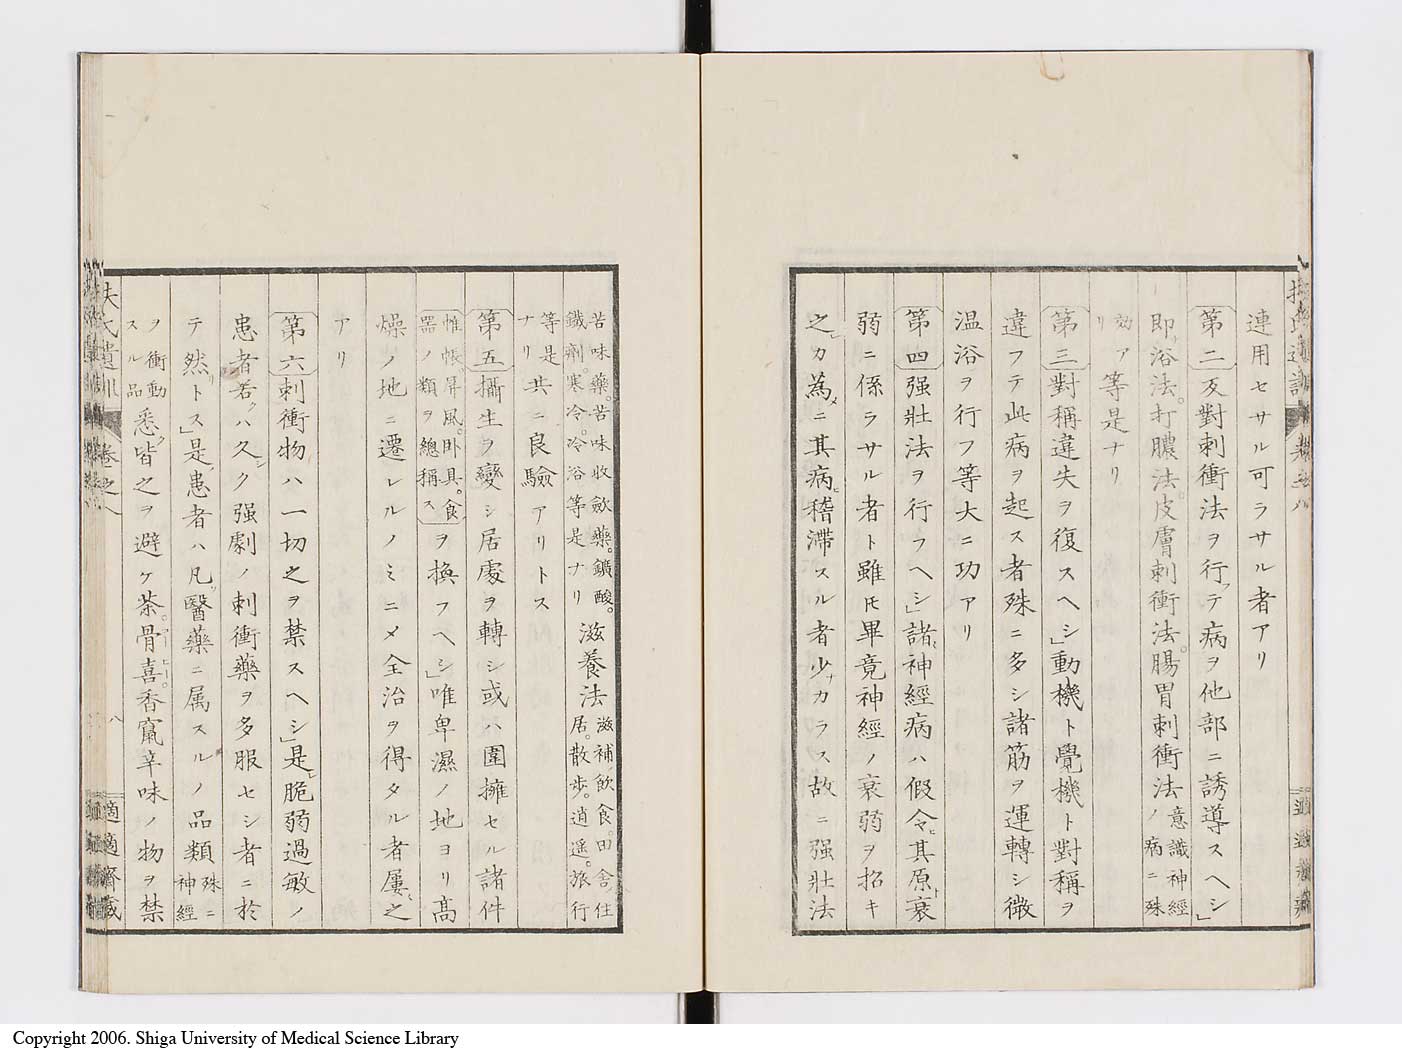 連用セサル可ラサル者アリ
第二反對刺衝法ヲ行テ病ヲ他部ニ誘導スヘシ」
即浴法。打膿法。皮膚刺衝法。腸胃刺衝法ノ意識神經病ニ殊
ニ効アリ等是ナリ
第三對稱違失ヲ復スヘシ」動機ト覺機ト對稱ヲ
違フテ此病ヲ起ス者殊ニ多シ諸筋ヲ運轉シ微
温浴ヲ行フ等大ニ功アリ
第四强壯法ヲ行フヘシ」諸神經病ハ假令ヒ其原衰
弱ニ係ラサル者ト雖𪜈畢竟神經ノ衰弱ヲ招キ
之カ為メニ其病ヒ稽滞スル者少ナカラス故ニ强壯法
苦味藥。苦味收斂藥。鑛酸。鐵劑。寒冷。冷浴等是ナリ滋養法滋補飲食。田舎住居。散歩。逍遥。旅行
等是ナリ共ニ良驗アリトス
第五攝生ヲ變シ居處ヲ轉シ或ハ圍擁セル諸件
帷帳屏風。卧具。食器ノ類ヲ總稱スヲ換フヘシ」唯卑濕ノ地ヨリ髙
燥ノ地ニ遷レルノミニメ全治ヲ得タル者屢之
アリ
第六刺衝物ハ一切之ヲ禁スヘシ」是レ脆弱過敏ノ
患者若クハ久シク强劇ノ刺衝藥ヲ多服セシ者ニ於
テ然リトス」是患者ハ凡ソ醫藥ニ属スルノ品類殊ニ神經
ヲ衝動スル品悉ク皆之ヲ避ケ茶。骨喜。香竄辛味ノ物ヲ禁
扶氏遺訓
卷之八
八
適適齋藏
Copyright 2006. Shiga University of Medical Science Library